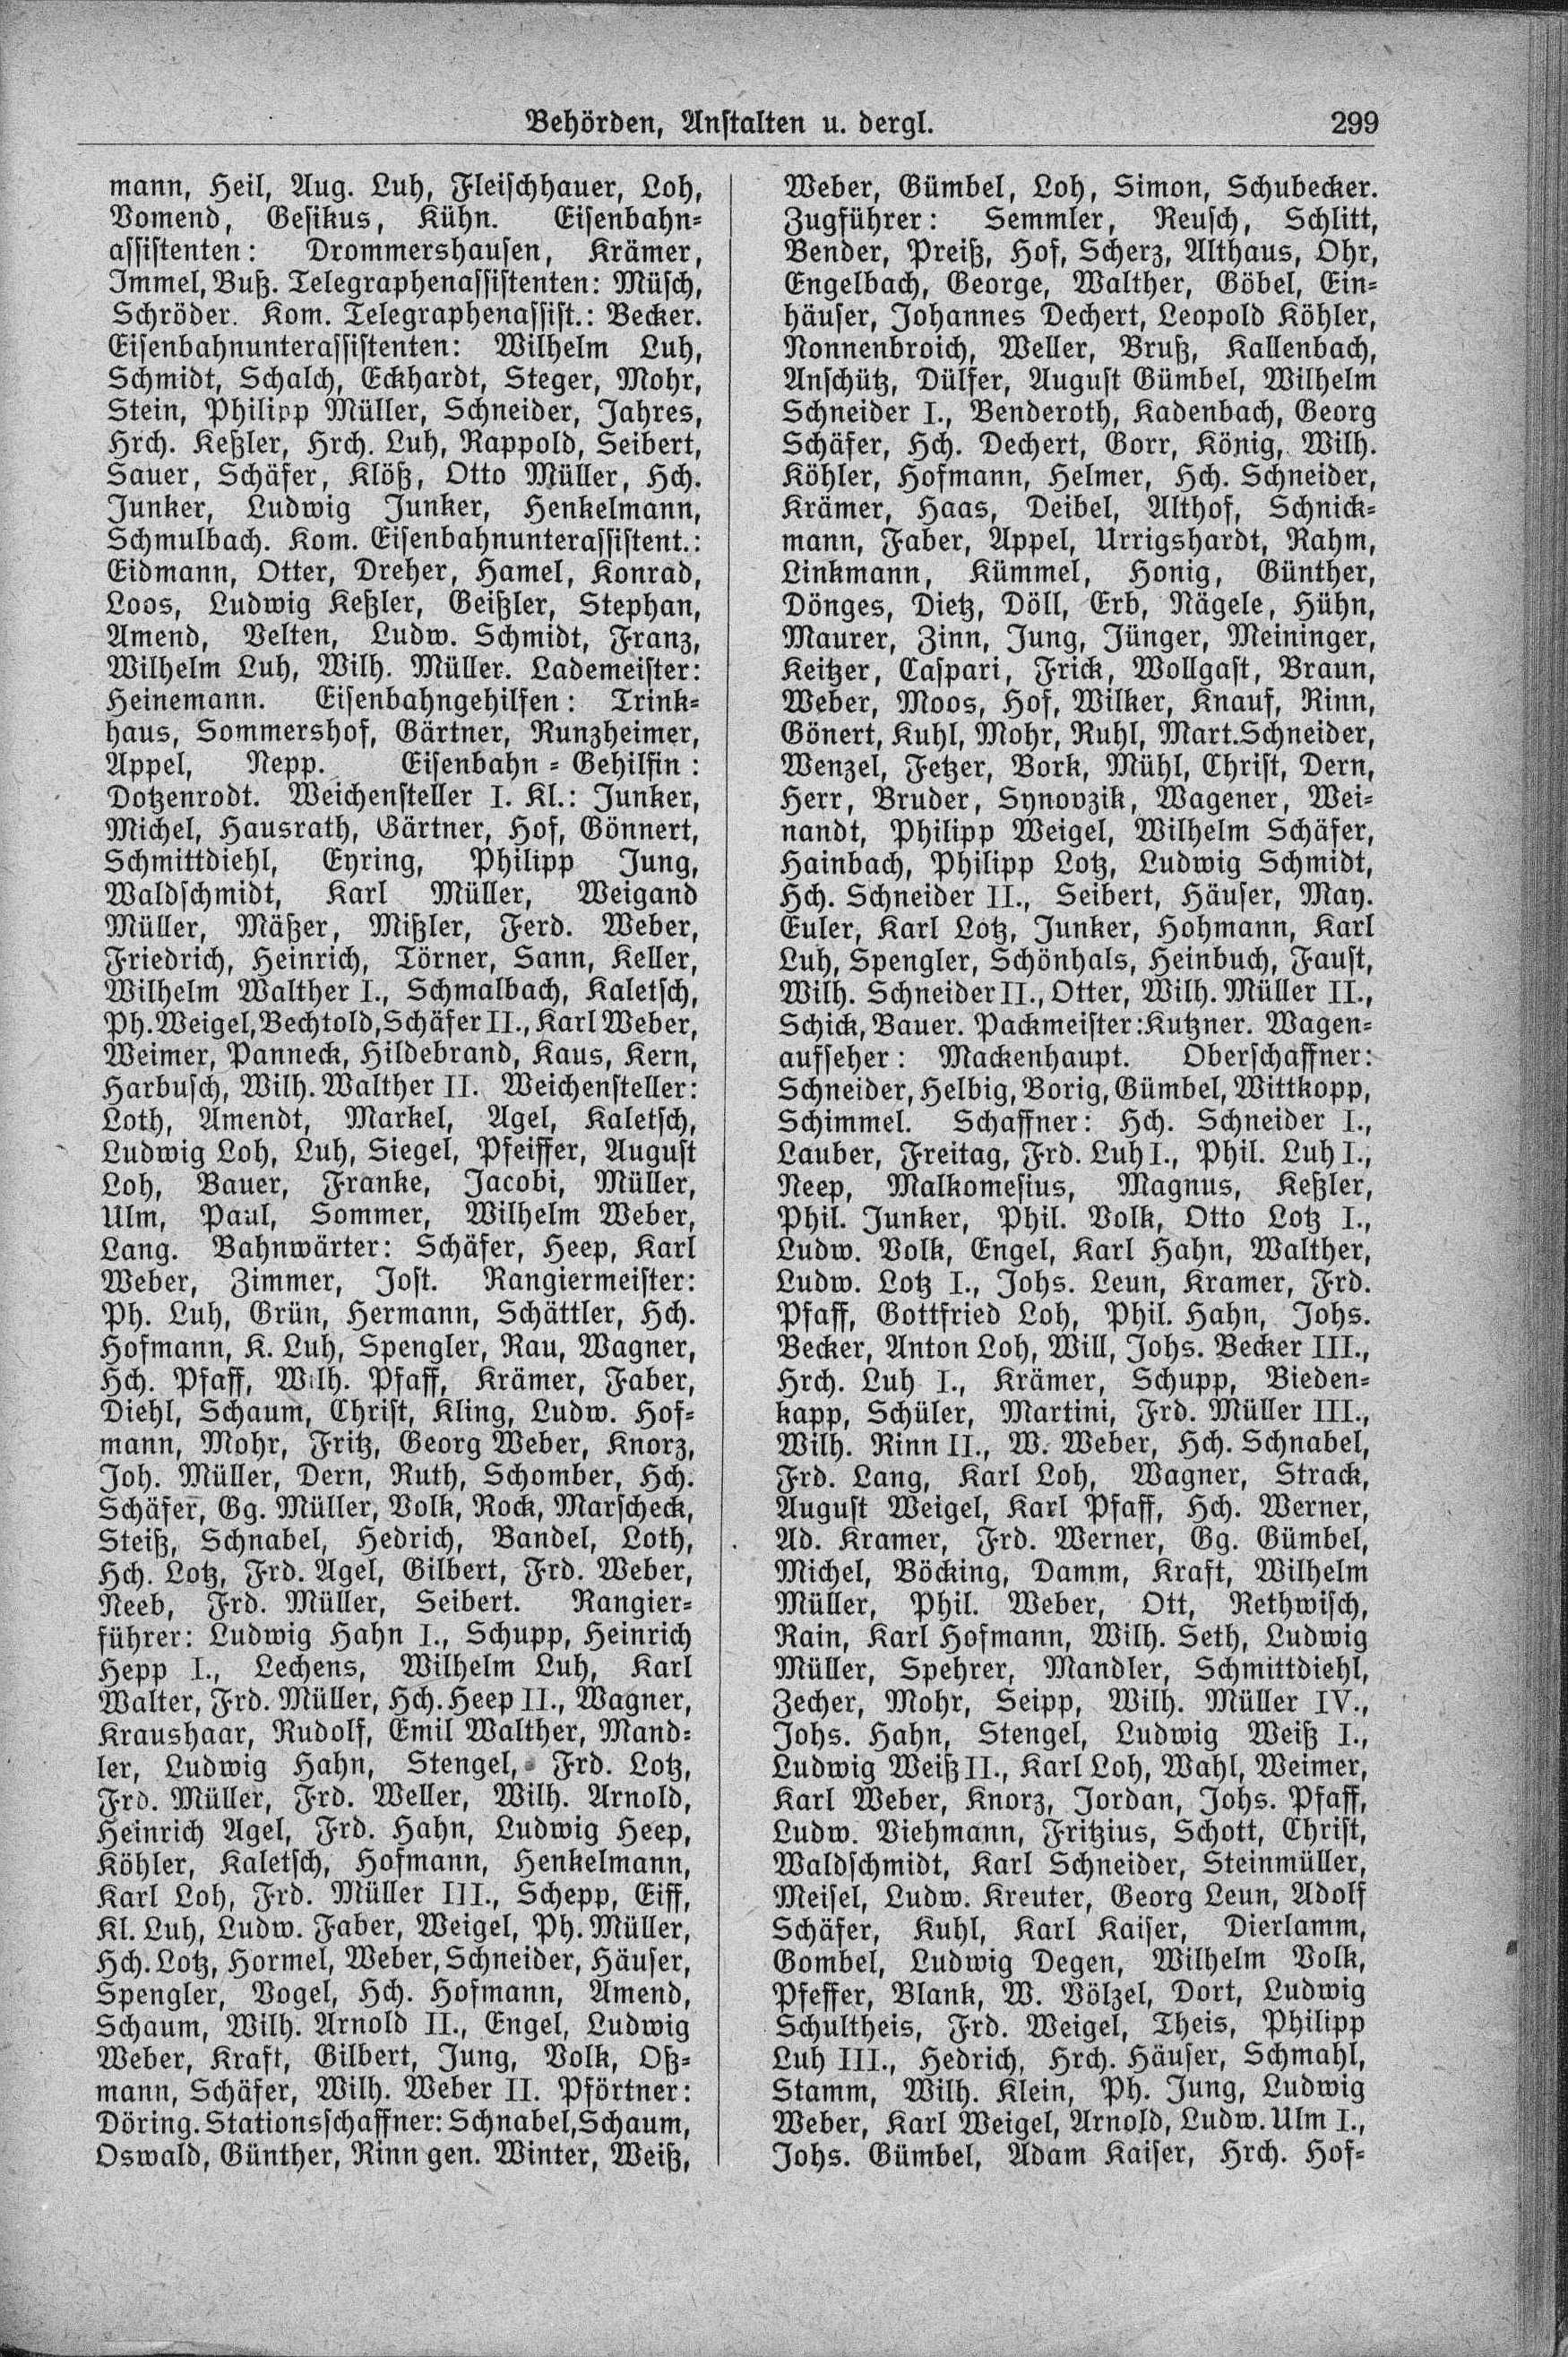 Behörden, Anstalten u. dergl. 299
mann, Heil, Aug. Luh, Fleischhauer, Loh,
Vomend, Gesikus, Kühn. Eisenbahn-
assistenten: Drommershausen, Krämer,
Immel, Buß. Telegraphenassistenten: Müsch,
Schröder. Kom. Telegraphenassist.: Becker.
Eisenbahnunterassistenten: Wilhelm Luh,
Schmidt, Schalch, Eckhardt, Steger, Mohr,
Stein, Philipp Müller, Schneider, Jahres,
Hrch. Keßler, Hrch. Luh, Rappold, Seibert,
Sauer, Schäfer, Klöß, Otto Müller, Hch.
Junker, Ludwig Junker, Henkelmann,
Schmulbach. Kom. Eisenbahnunterassistent.:
Eidmann, Otter, Dreher, Hamel, Konrad,
Loos, Ludwig Keßler, Geißler, Stephan,
Amend, Velten, Ludw. Schmidt, Franz,
Wilhelm Luh, Wilh. Müller. Lademeister:
Heinemann. Eisenbahngehilfen: Trink-
haus, Sommershof, Gärtner, Runzheimer,
Appel, Nepp. Eisenbahn-Gehilfin:
Dotzenrodt. Weichensteller I. Kl.: Junker,
Michel, Hausrath, Gärtner, Hof, Gönnert,
Schmittdiehl, Eyring, Philipp Jung,
Waldschmidt, Karl Müller, Weigand
Müller, Mäßer, Mißler, Ferd. Weber,
Friedrich, Heinrich, Törner, Sann, Keller,
Wilhelm Walther I., Schmalbach, Kaletsch,
Ph. Weigel, Bechtold, Schäfer II., Karl Weber,
Weimer, Panneck, Hildebrand, Kaus, Kern,
Harbusch, Wilh. Walther II. Weichensteller:
Loth, Amendt, Markel, Agel, Kaletsch,
Ludwig Loh, Luh, Siegel, Pfeiffer, August
Loh, Bauer, Franke, Jacobi, Müller,
Ulm, Paul, Sommer, Wilhelm Weber,
Lang. Bahnwärter: Schäfer, Heep, Karl
Weber, Zimmer, Jost. Rangiermeister:
Ph. Luh, Grün, Hermann, Schättler, Hch.
Hofmann, K. Luh, Spengler, Rau, Wagner,
Hch. Pfaff, Wilh. Pfaff, Krämer, Faber,
Diehl, Schaum, Christ, Kling, Ludw. Hof-
mann, Mohr, Fritz, Georg Weber, Knorz,
Joh. Müller, Dern, Ruth, Schomber, Hch.
Schäfer, Gg. Müller, Volk, Rock, Marscheck,
Steiß, Schnabel, Hedrich, Bandel, Loth,
Hch. Lotz, Frd. Agel, Gilbert, Frd. Weber,
Neeb, Frd. Müller, Seibert. Rangier-
führer: Ludwig Hahn I., Schupp, Heinrich
Hepp I., Lechens, Wilhelm Luh, Karl
Walter, Frd. Müller, Hch. Heep II., Wagner,
Kraushaar, Rudolf, Emil Walther, Mand-
ler, Ludwig Hahn, Stengel, Frd. Lotz,
Frd. Müller, Frd. Weller, Wilh. Arnold,
Heinrich Agel, Frd. Hahn, Ludwig Heep,
Köhler, Kaletsch, Hofmann, Henkelmann,
Karl Loh, Frd. Müller III., Schepp, Eiff,
Kl. Luh, Ludw. Faber, Weigel, Ph. Müller,
Hch. Lotz, Hormel, Weber, Schneider, Häuser,
Spengler, Vogel, Hch. Hofmann, Amend,
Schaum, Wilh. Arnold II., Engel, Ludwig
Weber, Kraft, Gilbert, Jung, Volk, Oß-
mann, Schäfer, Wilh. Weber II. Pförtner:
Döring. Stationsschaffner: Schnabel, Schaum,
Oswald, Günther, Rinn gen. Winter, Weiß,
Weber, Gümbel, Loh, Simon, Schubecker.
Zugführer: Semmler, Reusch, Schlitt,
Bender, Preiß, Hof, Scherz, Althaus, Ohr,
Engelbach, George, Walther, Göbel, Ein-
häuser, Johannes Dechert, Leopold Köhler,
Nonnenbroich, Weller, Bruß, Kallenbach,
Anschütz, Dülfer, August Gümbel, Wilhelm
Schneider I., Benderoth, Kadenbach, Georg
Schäfer, Hch. Dechert, Gorr, König, Wilh.
Köhler, Hofmann, Helmer, Hch. Schneider,
Krämer, Haas, Deibel, Althof, Schnick-
mann, Faber, Appel, Urrigshardt, Rahm,
Linkmann, Kümmel, Honig, Günther,
Dönges, Dietz, Döll, Erb, Nägele, Hühn,
Maurer, Zinn, Jung, Jünger, Meininger,
Keitzer, Caspari, Frick, Wollgast, Braun,
Weber, Moos, Hof, Wilker, Knauf, Rinn,
Gönert, Kuhl, Mohr, Ruhl, Mart. Schneider,
Wenzel, Fetzer, Bork, Mühl, Christ, Dern,
Herr, Bruder, Synovzik, Wagener, Wei-
nandt, Philipp Weigel, Wilhelm Schäfer,
Hainbach, Philipp Lotz, Ludwig Schmidt,
Hch. Schneider II., Seibert, Häuser, May.
Euler, Karl Lotz, Junker, Hohmann, Karl
Luh, Spengler, Schönhals, Heinbuch, Faust,
Wilh. Schneider II., Otter, Wilh. Müller II.,
Schick, Bauer. Packmeister: Kutzner. Wagen-
aufseher: Mackenhaupt. Oberschaffner:
Schneider, Helbig, Borig, Gümbel, Wittkopp,
Schimmel. Schaffner: Hch. Schneider I.,
Lauber, Freitag, Frd. Luh I., Phil. Luh I.,
Neep, Malkomesius, Magnus, Keßler,
Phil. Junker, Phil. Volk, Otto Lotz I.,
Ludw. Volk, Engel, Karl Hahn, Walther,
Ludw. Lotz I., Johs. Leun, Kramer, Frd.
Pfaff, Gottfried Loh, Phil. Hahn, Johs.
Becker, Anton Loh, Will, Johs. Becker III.,
Hrch. Luh I., Krämer, Schupp, Bieden-
kapp, Schüler, Martini, Frd. Müller III.,
Wilh. Rinn II., W. Weber, Hch. Schnabel,
Frd. Lang, Karl Loh, Wagner, Strack,
August Weigel, Karl Pfaff, Hch. Werner,
Ad. Kramer, Frd. Werner, Gg. Gümbel,
Michel, Böcking, Damm, Kraft, Wilhelm
Müller, Phil. Weber, Ott, Rethwisch,
Rain, Karl Hofmann, Wilh. Seth, Ludwig
Müller, Spehrer, Mandler, Schmittdiehl,
Zecher, Mohr, Seipp, Wilh. Müller IV.,
Johs. Hahn, Stengel, Ludwig Weiß I.,
Ludwig Weiß II., Karl Loh, Wahl, Weimer,
Karl Weber, Knorz, Jordan, Johs. Pfaff,
Ludw. Viehmann, Fritzius, Schott, Christ,
Waldschmidt, Karl Schneider, Steinmüller,
Meisel, Ludw. Kreuter, Georg Leun, Adolf
Schäfer, Kuhl, Karl Kaiser, Dierlamm,
Gombel, Ludwig Degen, Wilhelm Volk,
Pfeffer, Blank, W. Völzel, Dort, Ludwig
Schultheis, Frd. Weigel, Theis, Philipp
Luh III., Hedrich, Hrch. Häuser, Schmahl,
Stamm, Wilh. Klein, Ph. Jung, Ludwig
Weber, Karl Weigel, Arnold, Ludw. Ulm I.,
Johs. Gümbel, Adam Kaiser, Hrch. Hof-